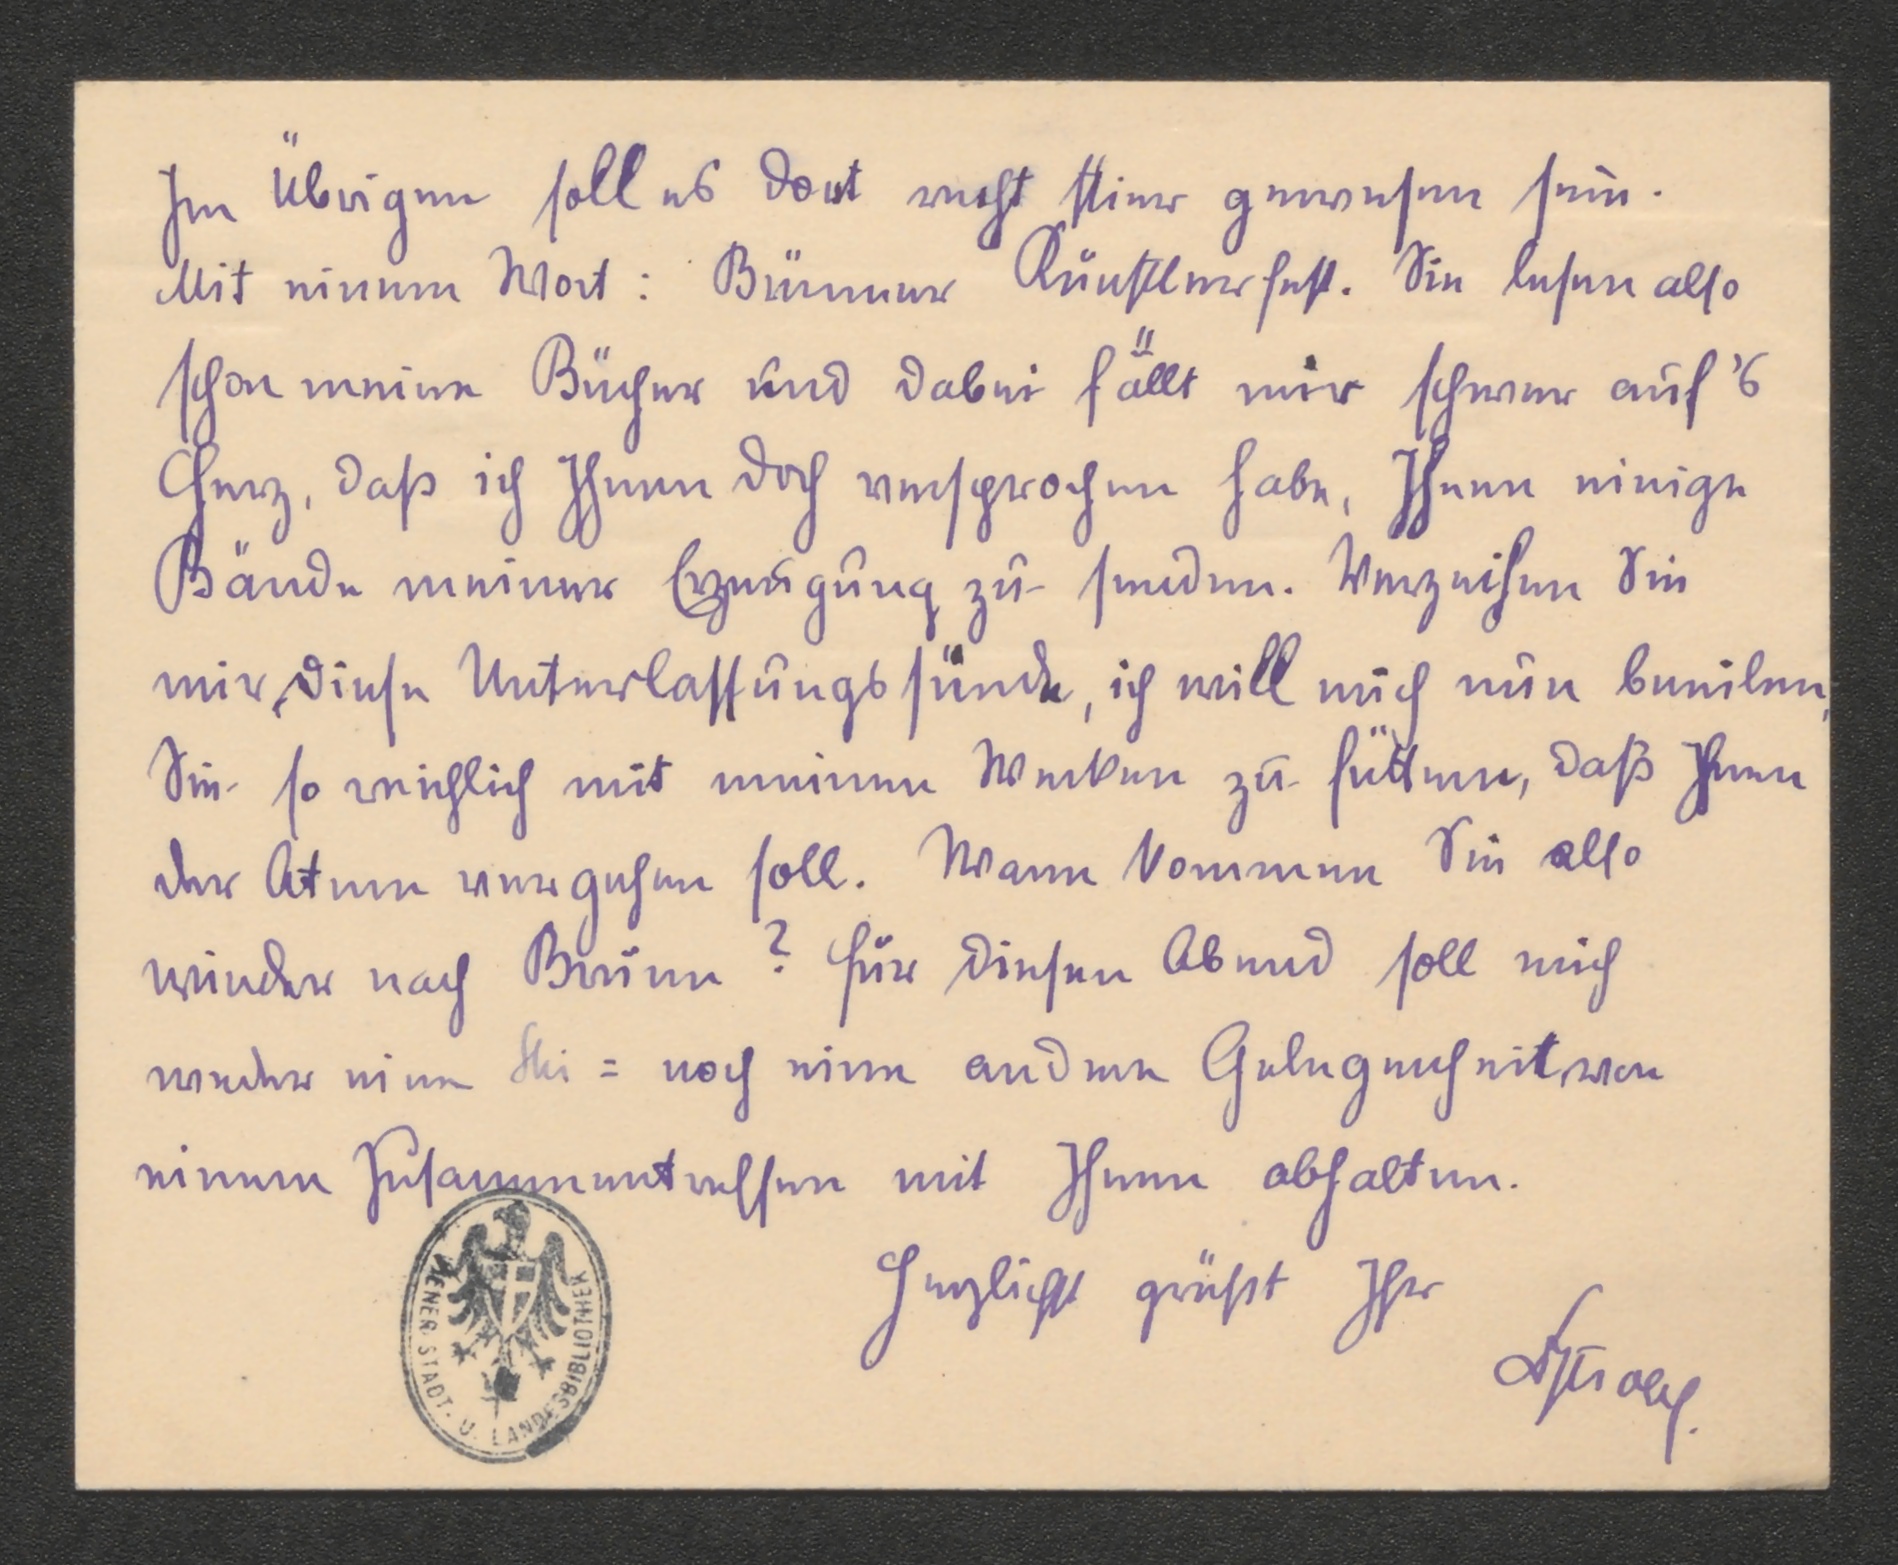 Im Übrigen soll es dort recht stier gewesen sein.
Mit einem Wort: Brünner Künstlerfest. Sie lesen also
schon meine Bücher und dabei fällt mir schwer auf's
Herz, daß ich Ihnen doch versprochen habe, Ihnen einige
Bände meiner Erzeugung zu senden. Verzeihen Sie
mir diese Unterlassungssünde, ich will mich nun beeilen,
Sie so reichlich mit meinen Werken zu füttern, daß Ihnen
der Atem vergehen soll. Wann kommen Sie also
wieder nach Brünn? Für diesen Abend soll mich
weder eine Ski= noch eine andere Gelegenheit von
einem Zusammentreffen mit Ihnen abhalten.
Herzlichst grüßt Ihr
Strobl.
WIENER STADT. U. LANDESBIBLIOTHEK